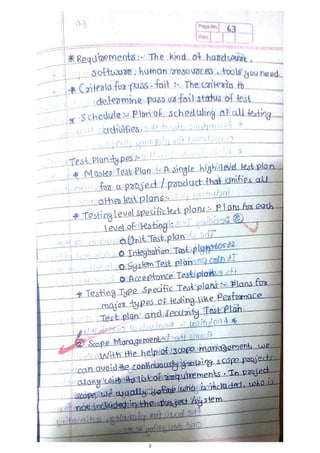 Page No. 63
Date
* Requirements:- The kind of hardware,
software, human resources, tools you need
* Criteria for pass-fail :- The criteria to
determine pass or fail status of test
* Schedule:- Plan of scheduling of all testing
activities.
Test Plan types:-
* Master Test Plan :- A single high-level test plan
for a project / product that unifies all
other test plans.
* Testing level specific test plans:- Plans for each
level of testing:
Unit Test plan
Integration Test plan
System Test plan
Acceptance Test plan
* Testing Type Specific Test plans:- Plans for
major types of testing like Perfomace
Test plan and Security Test Plan.
Scope Management
With the help of scope management we
can avoid the continuously growing scope projects
along with the lot of requirements. In project
scope, we usually define who is included, who is
not included in the project / system.
2